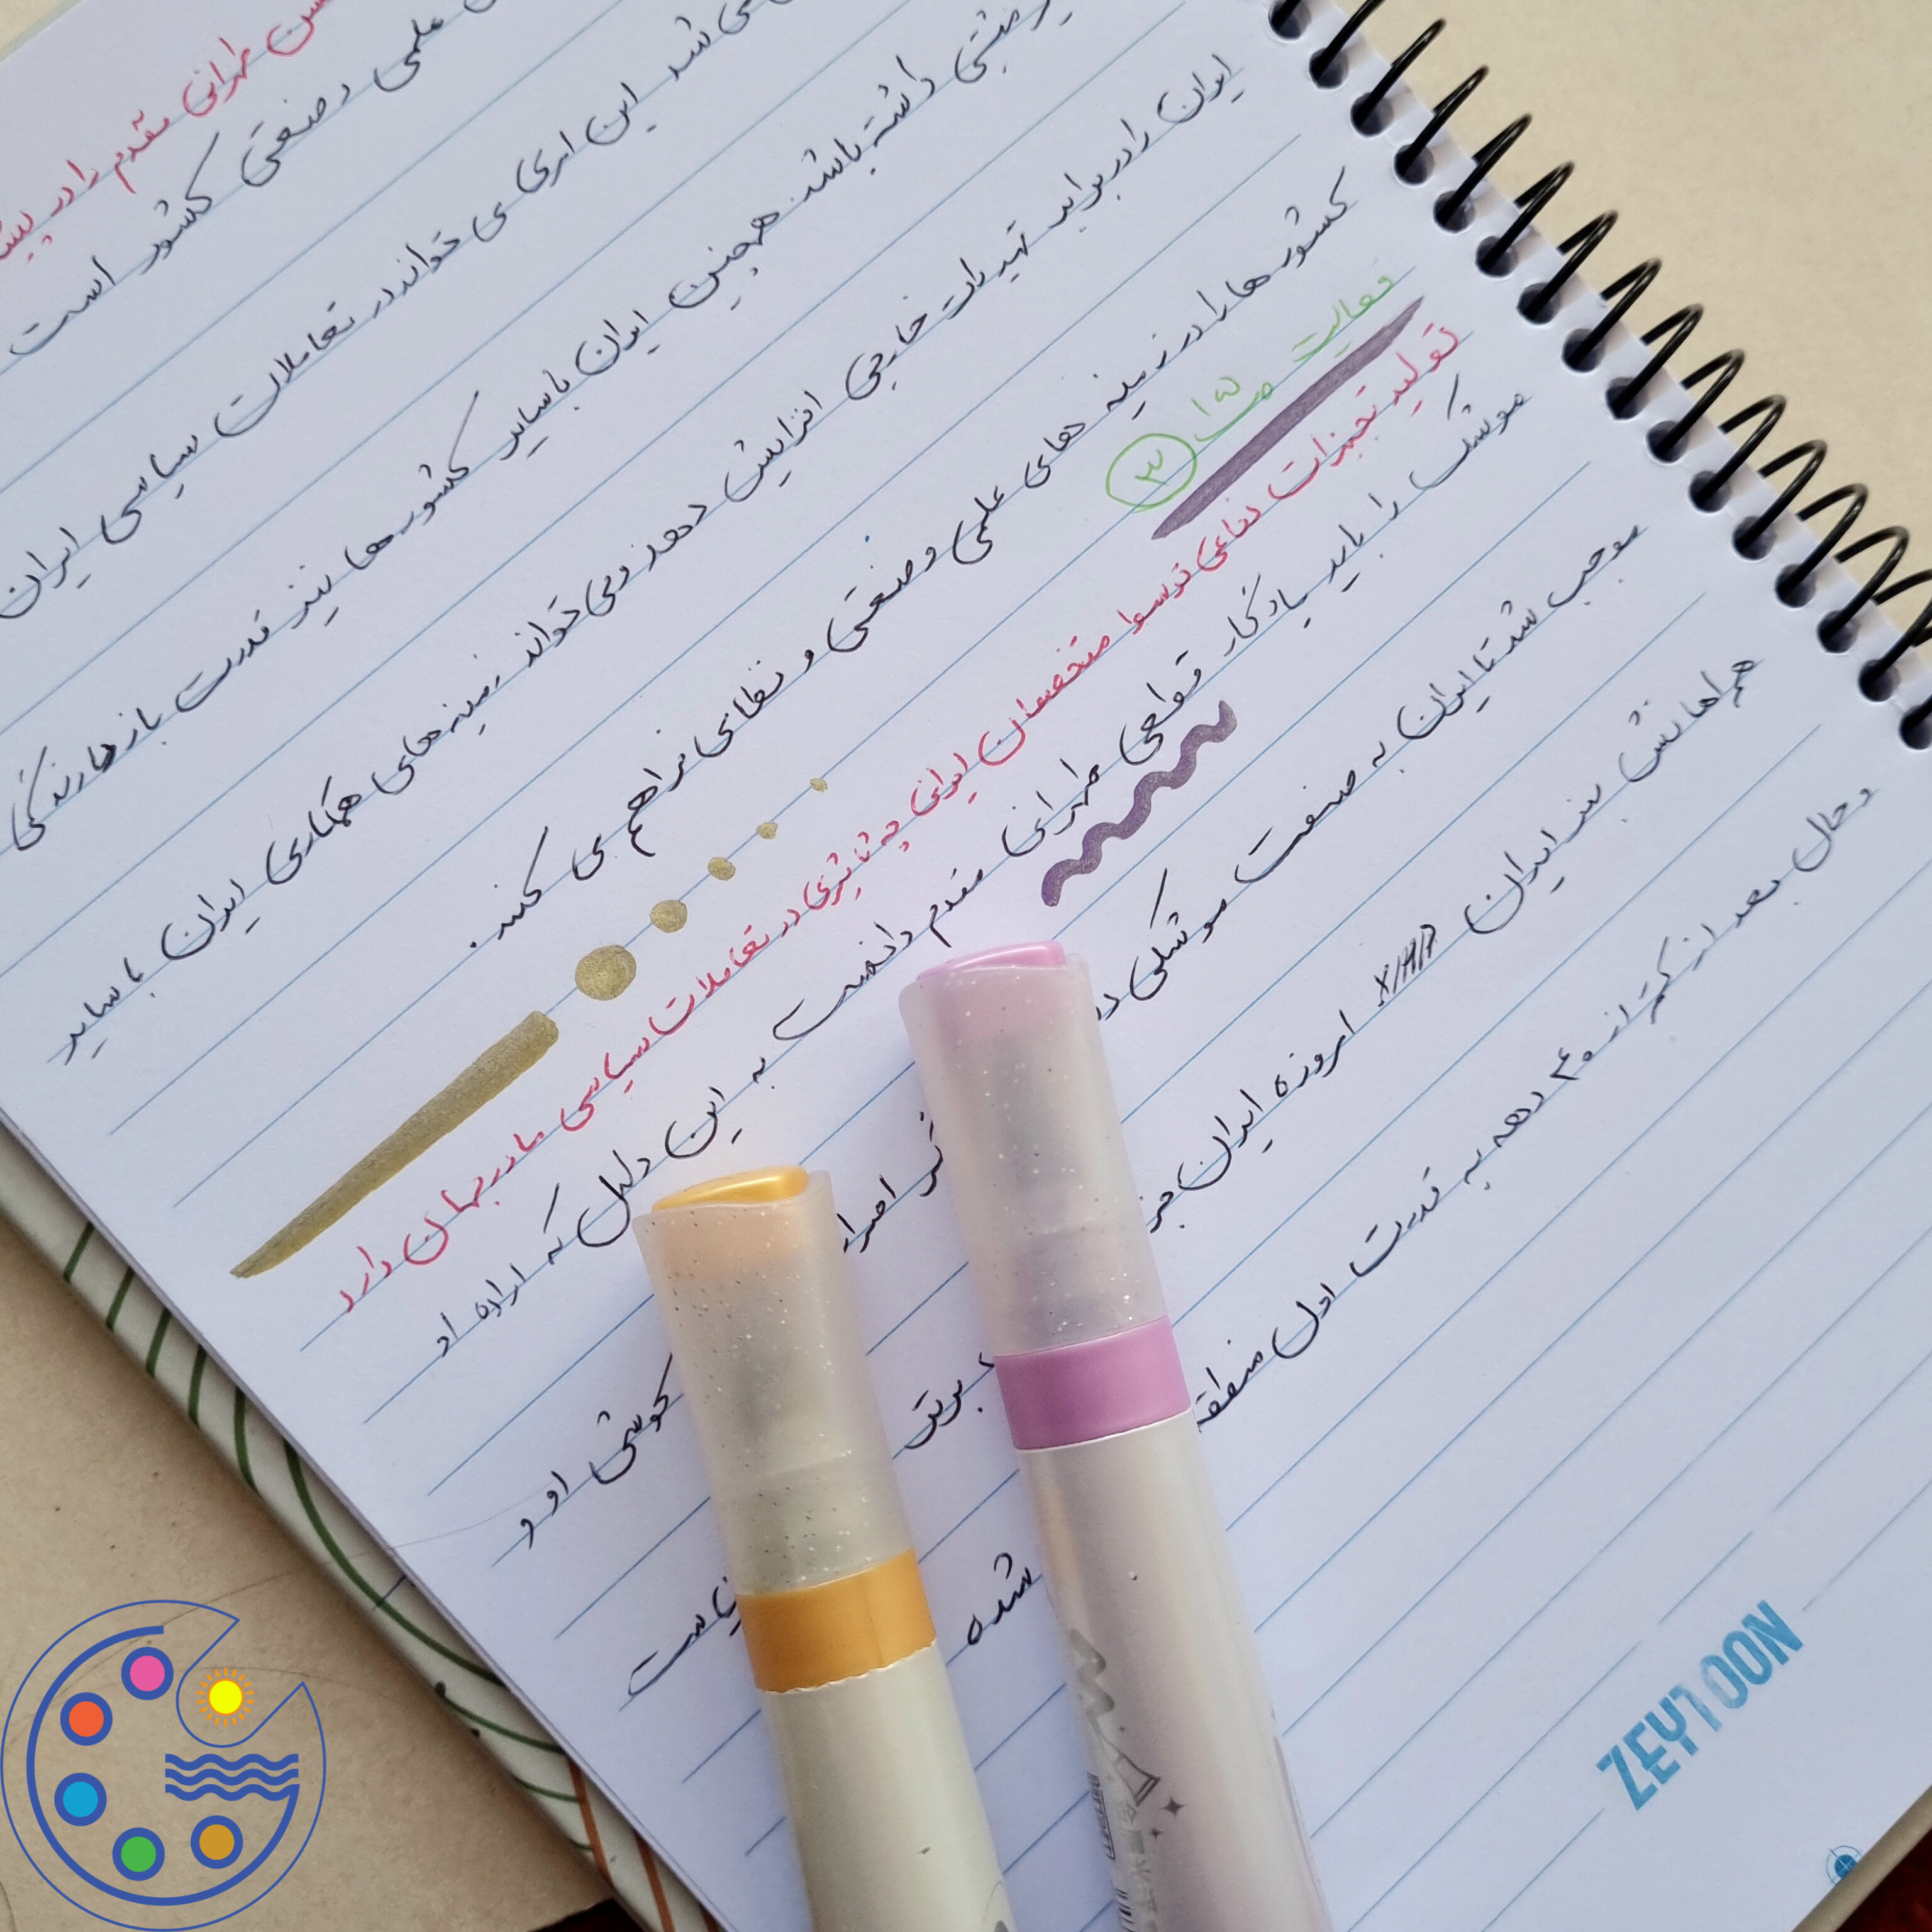 طهرانی مقدم را در
علمی و صنعتی کشور است
شد این امری می تواند در تعاملات سیاسی ایران
مثبتی داشته باشد. همچنین ایران با سایر کشور ها نیز قدرت بازدارندگی
ایران را در برابر تهدیدات خارجی افزایش دهد و می تواند زمینه های همکاری ایران با سایر
کشور ها را در زمینه های علمی و صنعتی و نظامی فراهم می کند.
فعالیت ص ۱۵ ۳
تولید تجهیزات دفاعی توسط متخصصان ایرانی چه تاثیری در تعاملات سیاسی ما در جهان دارد
موشک را باید یادگار قطعی طهرانی مقدم دانست به این دلیل که اراده او
موجب شد تا ایران به صنعت موشکی در اصرار کوشی او و
همراهانش نیز ایران امروزه ایران جز برتر است
و حال بعد از کمتر از ۴۰ دهه به قدرت اول منطقه شده
ZEYTOON